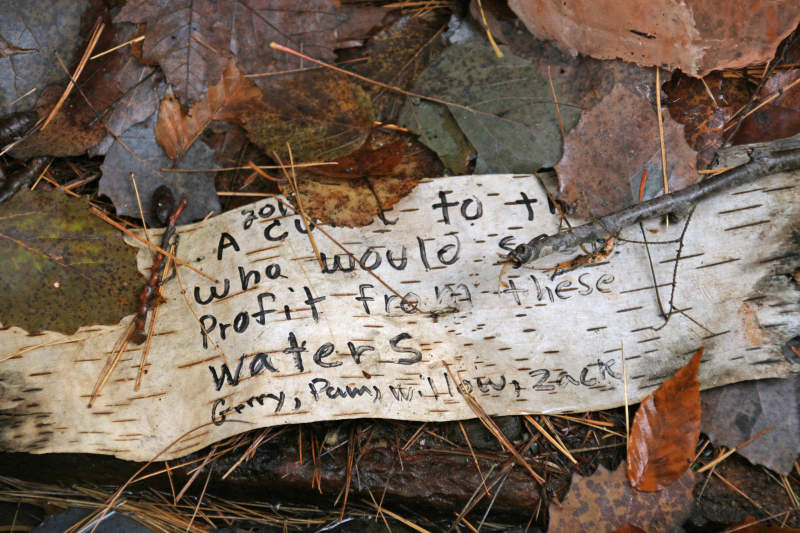 201
A Cu e to th
who would s
Profit from these
waters
Gerry, Pam, Willow, Zack